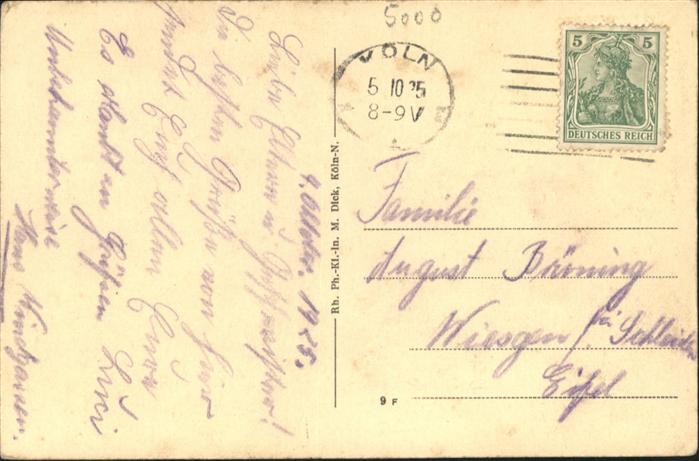 5000
KÖLN
5 10 25
8-9V
5 5
DEUTSCHES REICH
4. Oktober 1925.
Liebe Eltern u. Geschwister!
Die besten Grüße von hier
sendet Euch allen Eure
Luci
Es sendet Grüßen
Unbekannterweise
Hans
Rh. Ph.-Kl.-In. M. Dick, Köln-N.
Familie
August Brüning
Wiesgen / bei Schleiden
Eifel
9 F